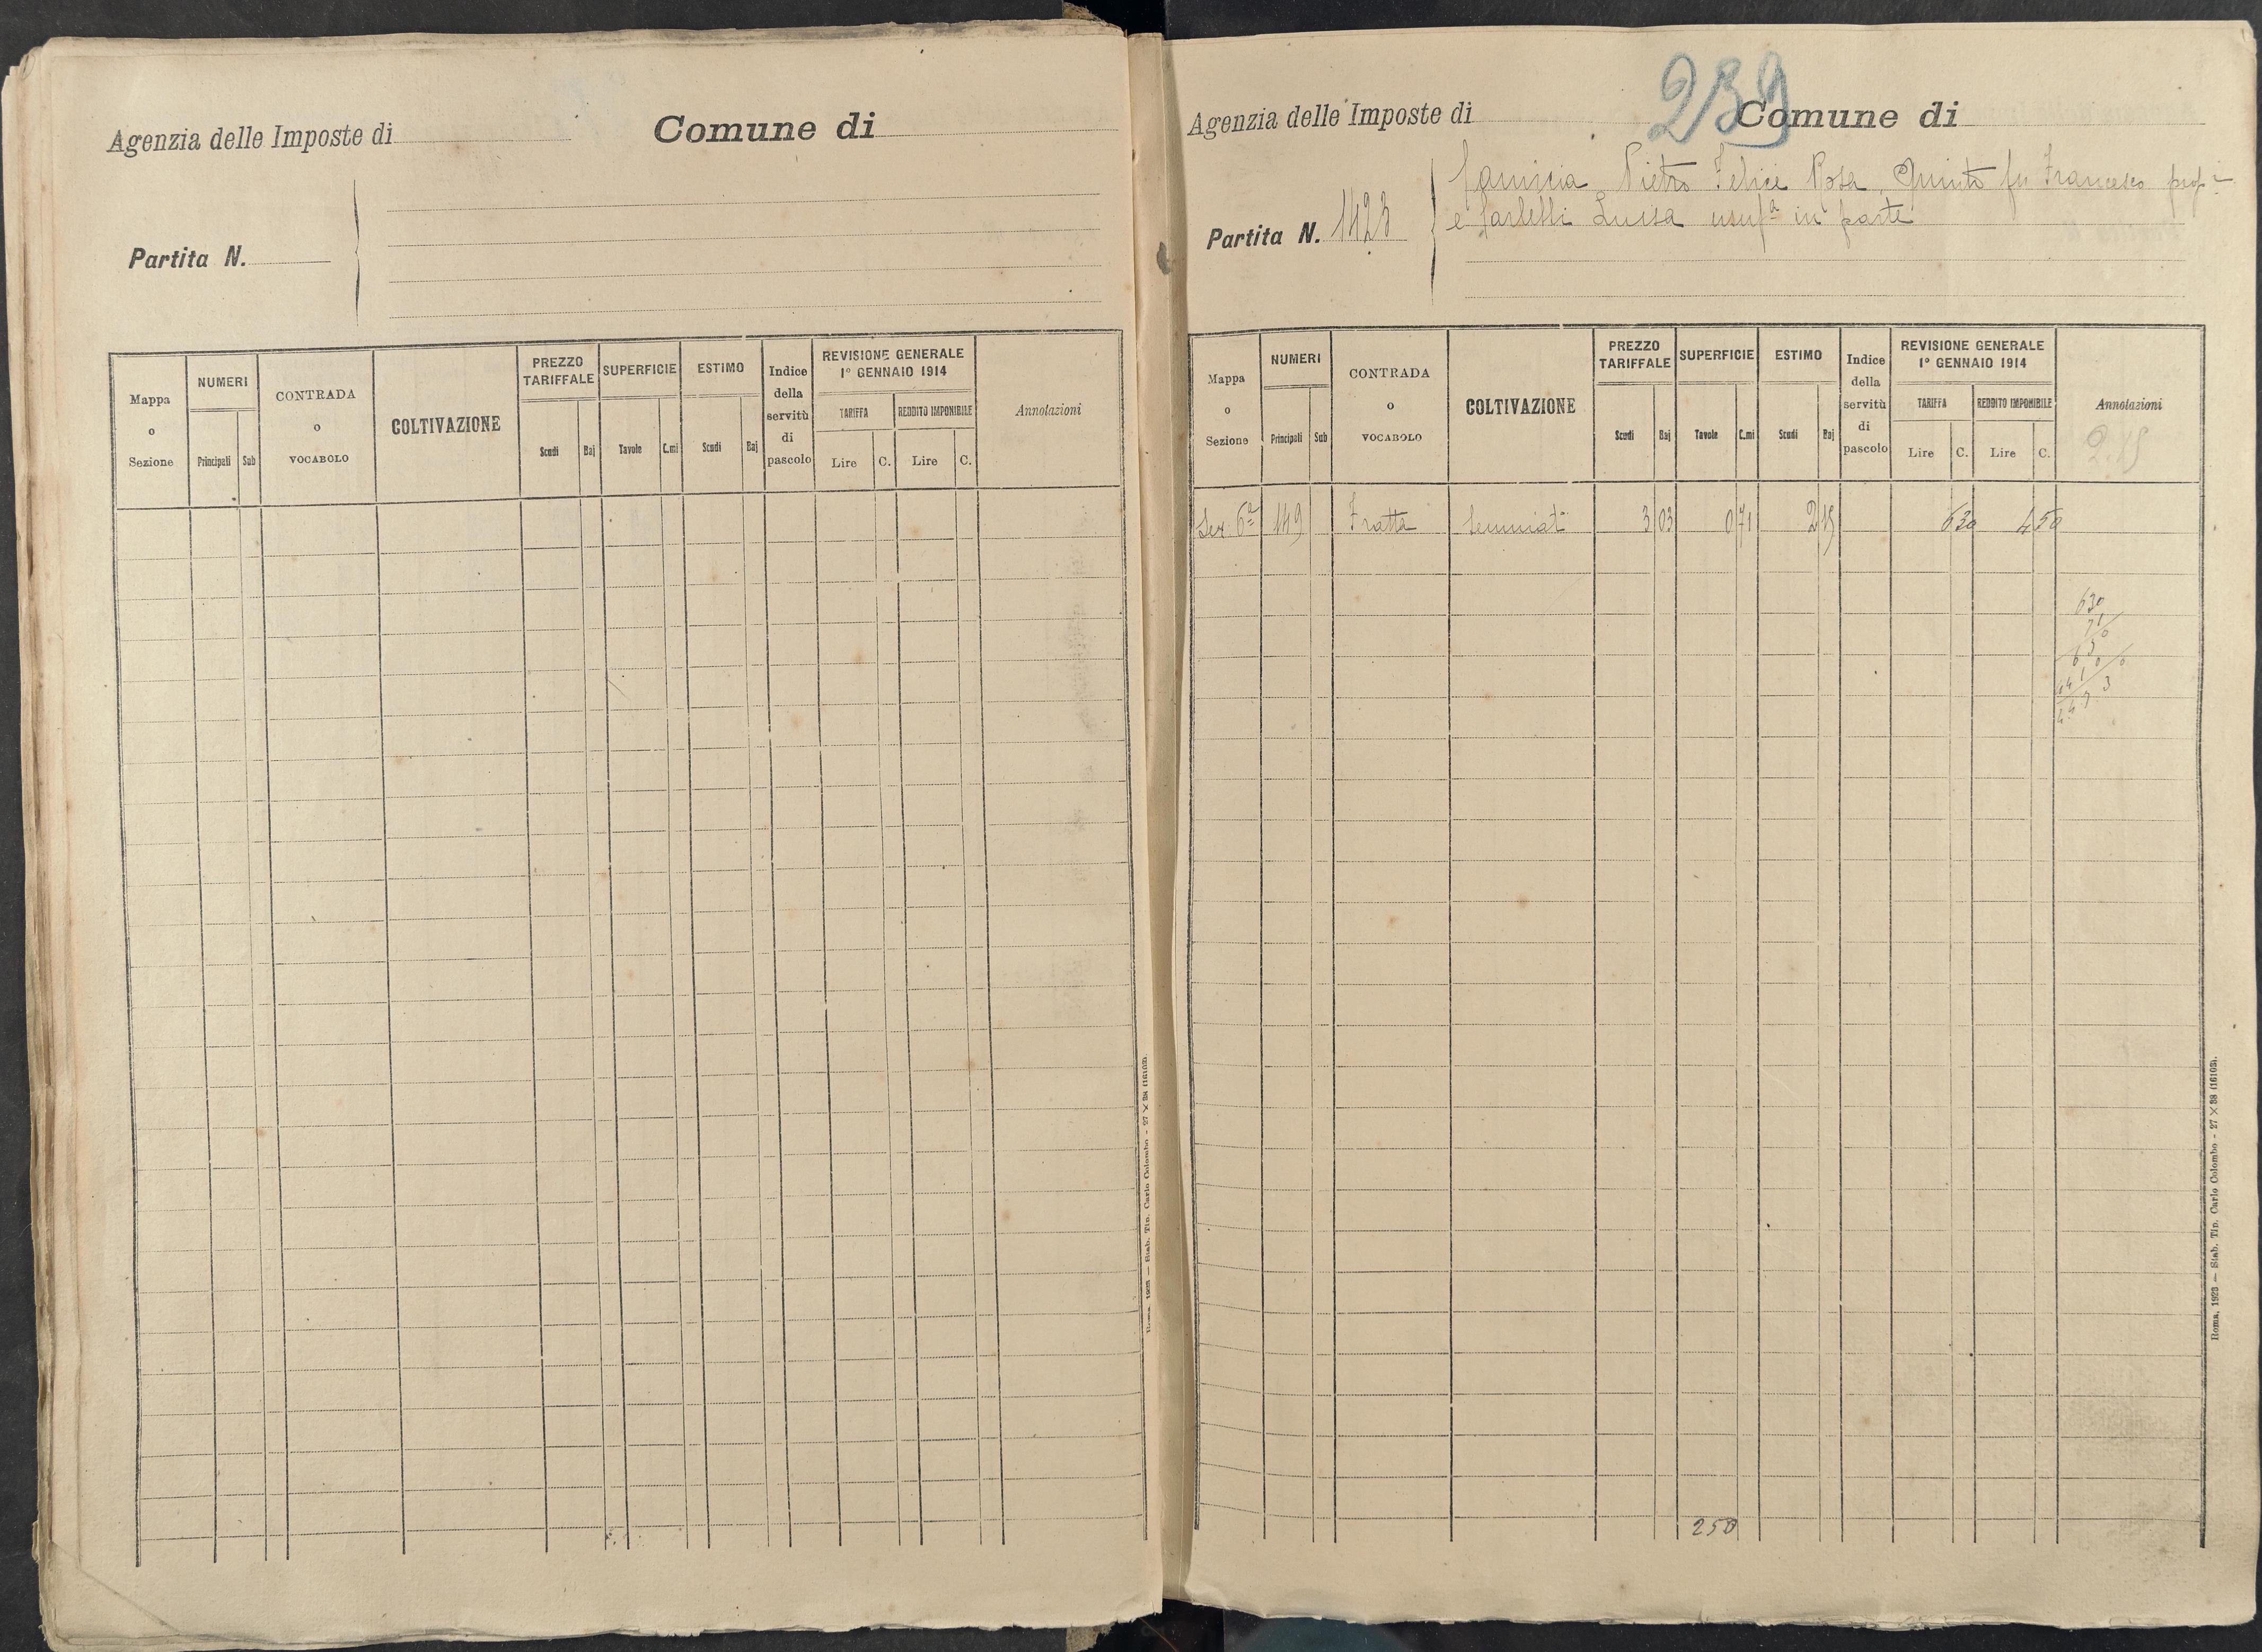 Agenzia delle Imposte di Comune di
Partita N.
Mappa o Sezione
NUMERI
Principali Sub
CONTRADA o VOCABOLO
COLTIVAZIONE
PREZZO TARIFFALE
Scudi Baj
SUPERFICIE
Tavole C.mi
ESTIMO
Scudi Baj
Indice della servitù di pascolo
REVISIONE GENERALE
1° GENNAIO 1914
TARIFFA REDDITO IMPONIBILE
Lire C. Lire C.
Annotazioni
Roma, 1923 — Stab. Tip. Carlo Colombo - 27 × 38 (16103).
239
Agenzia delle Imposte di Comune di
Pietro Felice Rosa Quinto fu Francesco
Partita N. 1423
e Luisa usufª in parte
Mappa o Sezione
NUMERI
Principali Sub
CONTRADA o VOCABOLO
COLTIVAZIONE
PREZZO TARIFFALE
Scudi Baj
SUPERFICIE
Tavole C.mi
ESTIMO
Scudi Baj
Indice della servitù di pascolo
REVISIONE GENERALE
1° GENNAIO 1914
TARIFFA REDDITO IMPONIBILE
Lire C. Lire C.
Annotazioni
2.15
Sez. 6ª 149 Fratta Seminatº 3 03 0 71 2 15 630 4 50
630
71
250
Roma, 1923 — Stab. Tip. Carlo Colombo - 27 × 38 (16103).